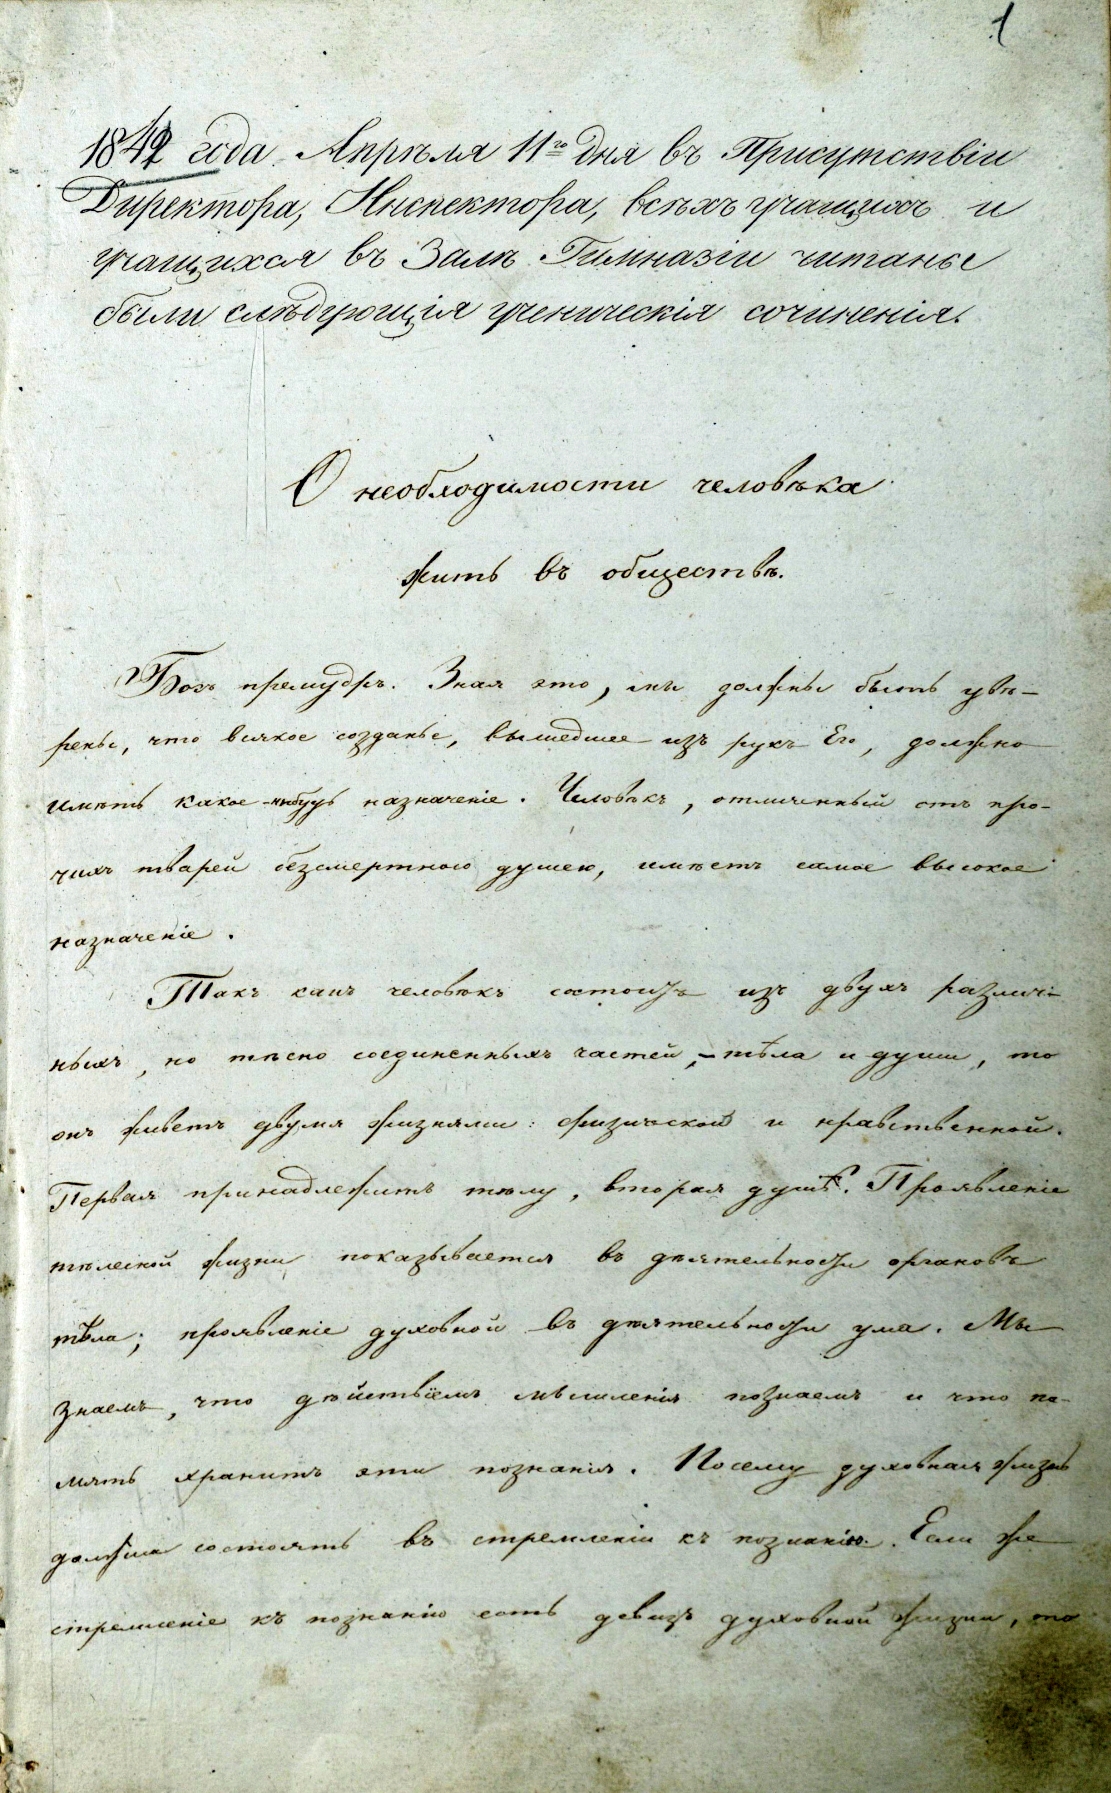 1
1842 года Апрѣля 11го дня въ Присутствіи
Директора, Инспектора, всѣхъ учащихъ и
учащихся въ Залѣ Гимназіи читаны
были слѣдующія ученическія сочиненія.
О необходимости человѣка
жить въ обществѣ.
Богъ премудръ. Зная это, мы должны быть увѣ-
рены, что всякое созданье, вышедшее изъ рукъ Его, должно
имѣть какое-нибудь назначеніе. Человѣкъ, отличенный отъ про-
чихъ тварей безсмертною душею, имѣетъ самое высокое
назначеніе.
Такъ какъ человѣкъ состоитъ изъ двухъ различ-
ныхъ, но тѣсно соединенныхъ частей, – тѣла и души, то
онъ живетъ двумя жизнями: физической и нравственной.
Первая принадлежитъ тѣлу, вторая душѣ. Проявленіе
тѣлесной жизни показывается въ дѣятельности органовъ
тѣла; проявленіе духовной въ дѣятельности ума. Мы
знаемъ, что дѣйствіемъ мышленія познаемъ и что па-
мять хранитъ эти познанія. Посему духовная жизнь
должна состоять въ стремленіи къ познанію. Если же
стремленіе къ познанію есть девизъ духовной жизни, то